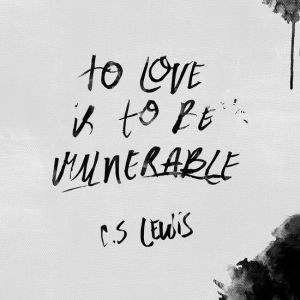 TO LOVE
is TO BE
VULNERABLE
C.S LEWIS